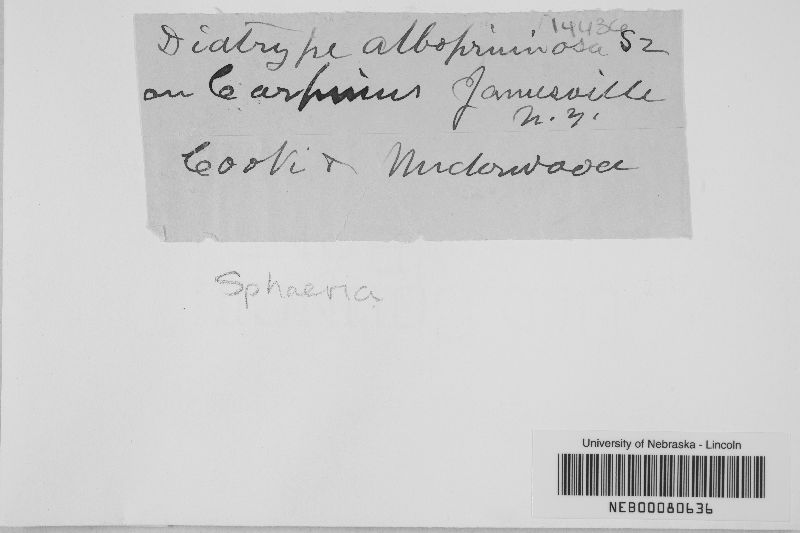 14436
Diatrype albopruinosa Sz
on Carpinus Jamesville
N. Y.
Cook & Underwood
Sphaeria
University of Nebraska - Lincoln
NEB00080636